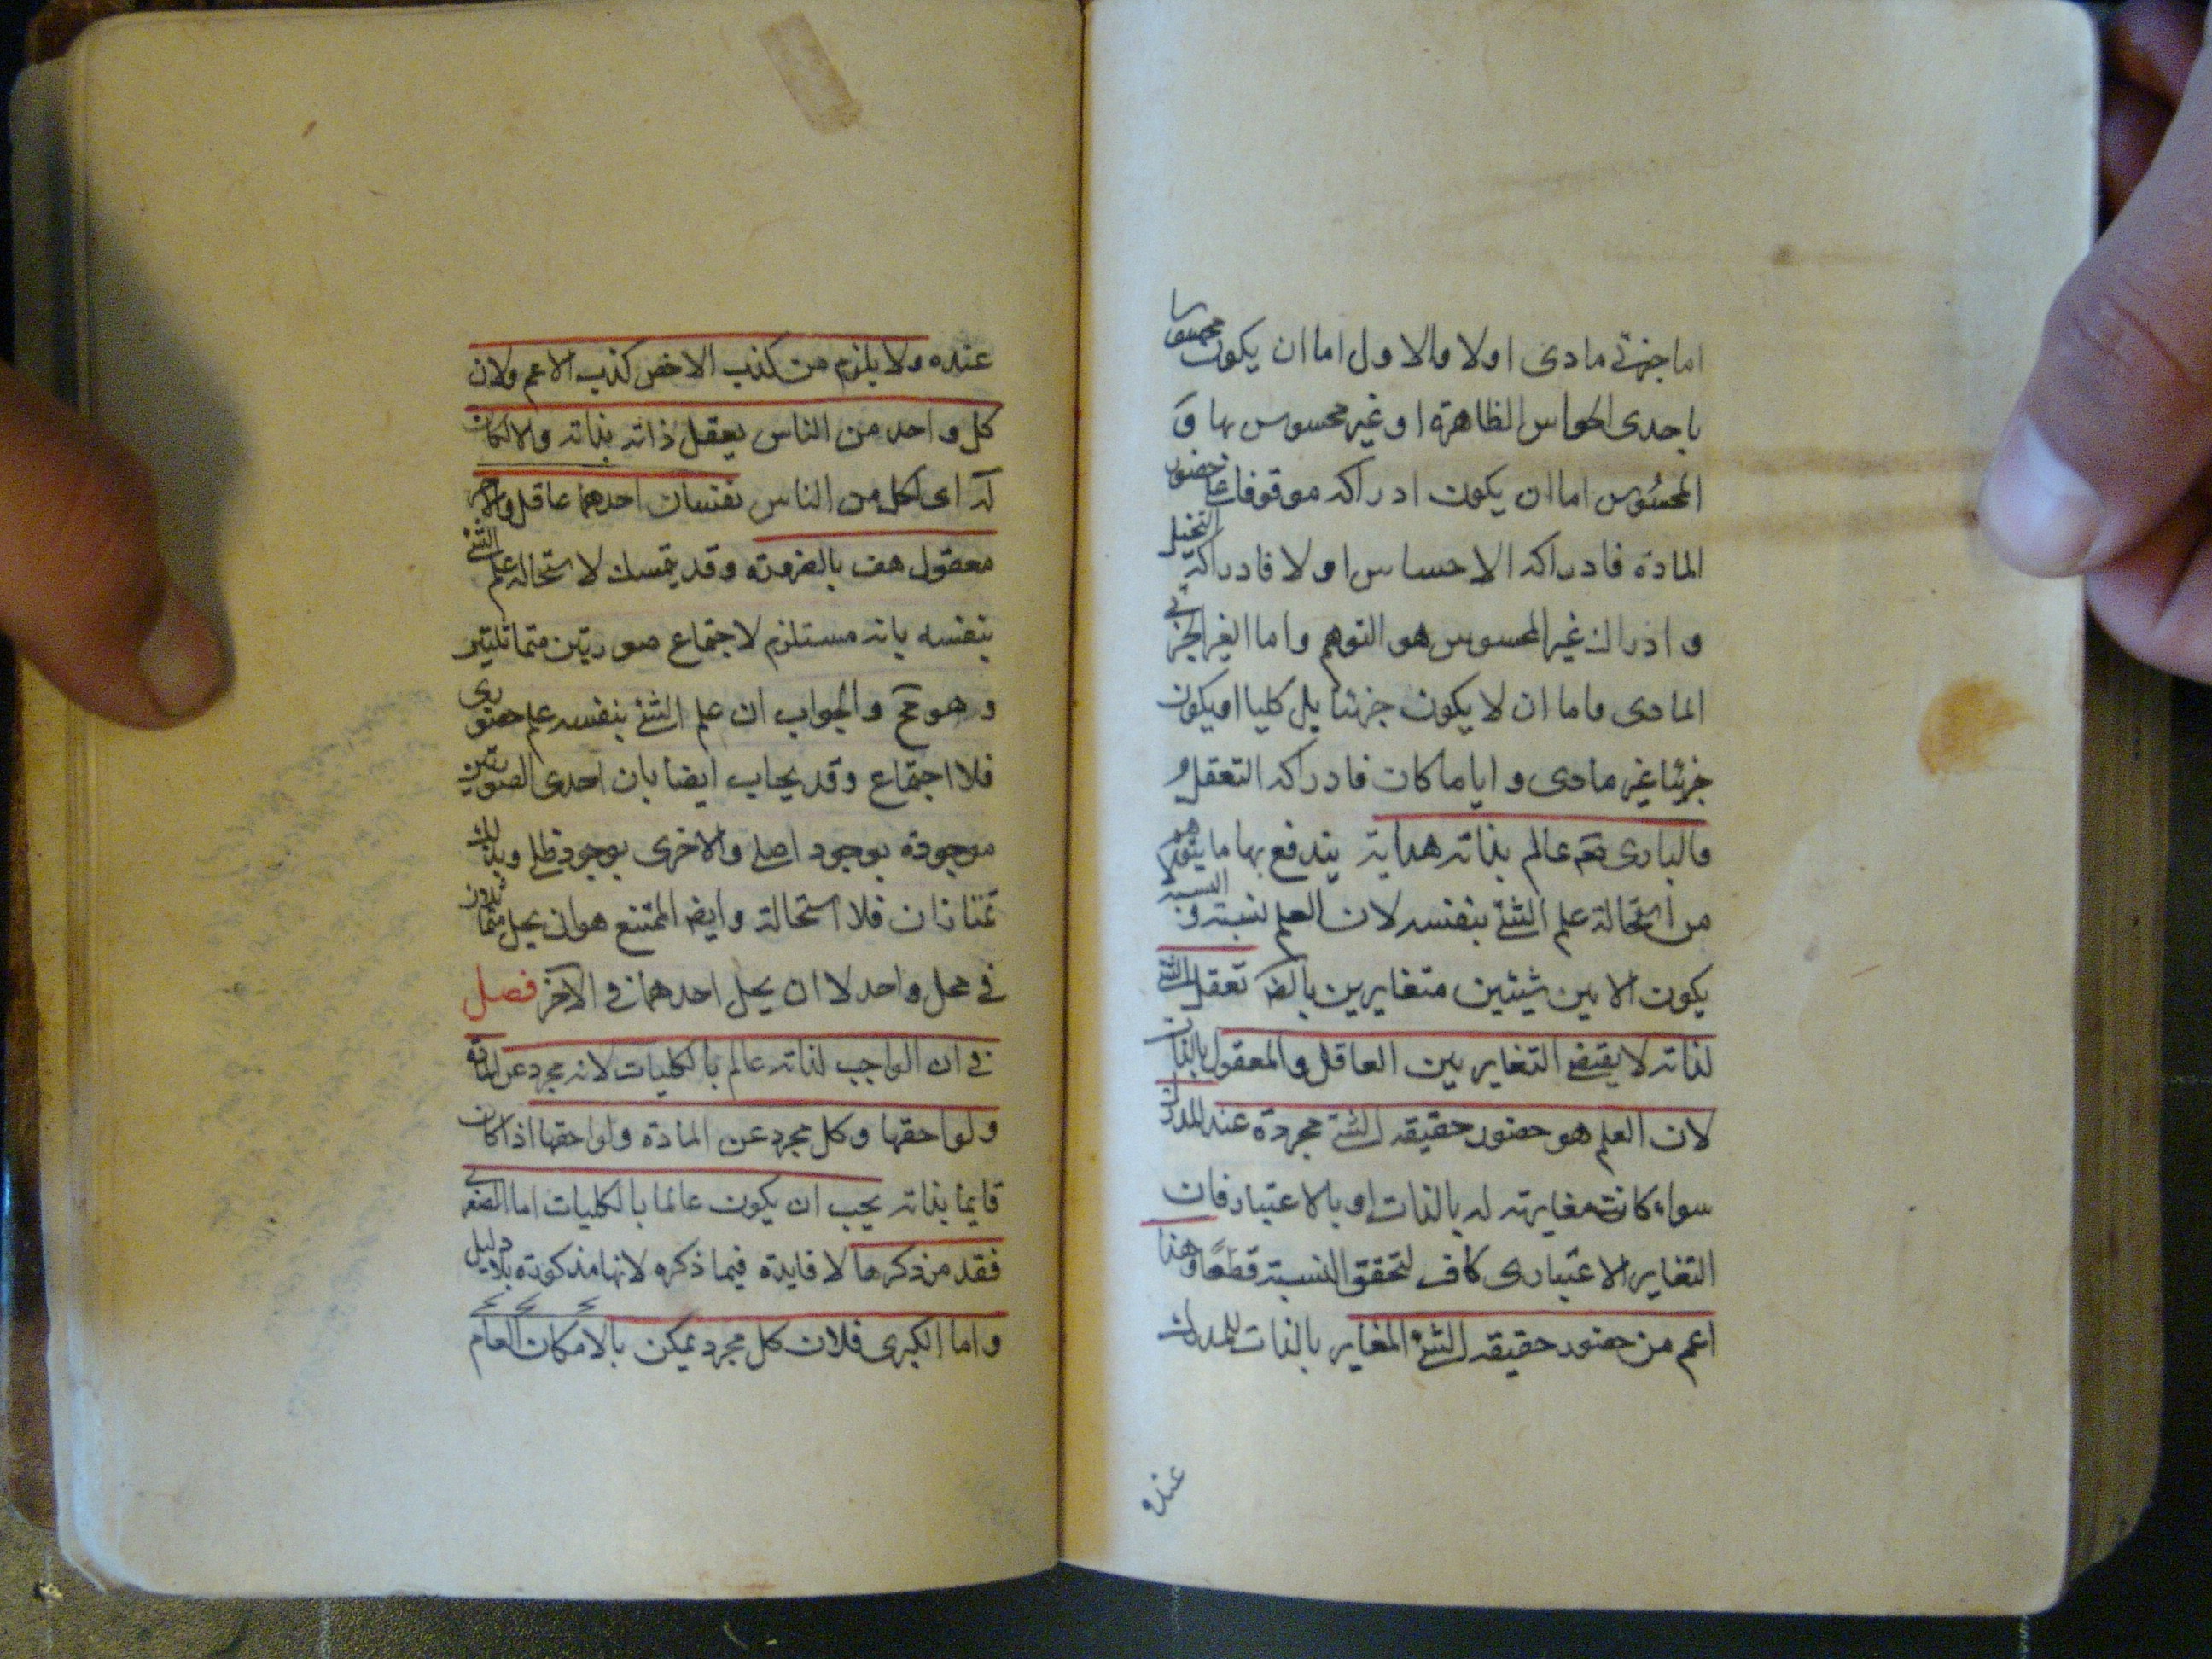 اما جزئى مادى اولا والاول اما ان يكون محسوسا
باحدى الحواس الظاهرة او غير محسوس بها و
المحسوس اما ان يكون ادراكه موقوفا على حضور
المادة فادراكه الاحساس اولا فادراكه التخيل
و ادراك غير المحسوس هو التوهم واما الغير الجزئى
المادى فاما ان لا يكون جزئيا بل كليا او يكون
جزئيا غير مادى و اياما كان فادراكه التعقل و
فالبارى تعم عالم بذاته هداية يندفع بها ما يتوهم
من استحالة علم الشئ بنفسه لان العلم نسبة و النسبة
يكون الا بين شيئين متغايرين بالضر تعقل الشئ
لذاته لا يقتضى التغاير بين العاقل والمعقول بالذات
لان العلم هو حضور حقيقة الشئ مجردة عند المدرك
سواء كانت مغايرته له بالذات او بالاعتبار فان
التغاير الاعتبارى كاف لتحقق النسبة قطعا وهذا
اعم من حضور حقيقة الشئ المغاير بالذات للمدرك
عنده
عنده ولا يلزم من كذب الاخص كذب الاعم ولان
كل واحد من الناس يعقل ذاته بذاته والا لكان
له اى لكل من الناس نفسان احدهما عاقل والاخر
معقول هف بالضرورة وقد يتمسك لاستحالة علم الشئ
بنفسه بانه مستلزم لاجتماع صورتين متماثلتين
و هو مح والجواب ان علم الشئ بنفسه علم حضورى
فلا اجتماع وقد يجاب ايضا بان احدى الصورتين
موجودة بوجود اصلى والاخرى بوجود ظلى وبذلك
تمتازان فلا استحالة وايضا الممتنع هو ان يحل متماثلان
فى محل واحد لا ان يحل احدهما فى الآخر فصل
فى ان الواجب لذاته عالم بالكليات لانه مجرد عن المادة
ولواحقها وكل مجرد عن المادة ولواحقها اذا كان
قايما بذاته يجب ان يكون عالما بالكليات اما الصغرى
فقد مر ذكرها لا فايدة فيما ذكره لانها مذكورة بلا دليل
واما الكبرى فلان كل مجرد يمكن بالامكان العام